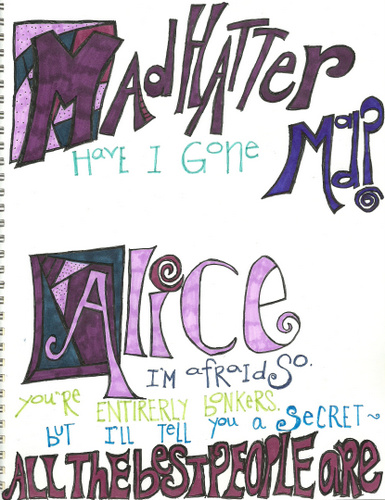 MadHatter
Have I Gone
Mad?
Alice
I'm afraid so.
you're ENTIRERLY bonkers.
but I'll tell you a SeCRET~
ALL THE besT PEOPLE are